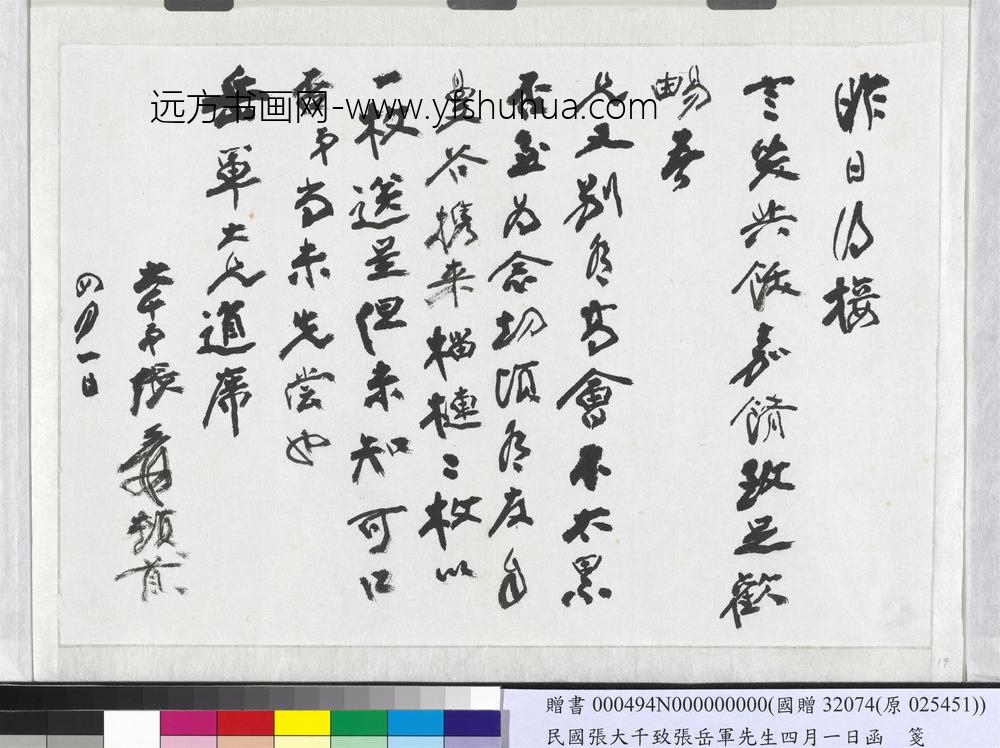 昨日得接
言笑共飯嘉餚致足歡
暢吾
兄又別有高會不太累
否至為念切頃有友自
曼谷攜來榴槤二枚以
一枚送呈但未知可口
否弟尚未先嘗也
岳軍大兄道席
大千弟張爰頓首
四月一日
远方书画网-www.yfshuhua.com
19
贈書 000494N000000000(國贈 32074(原 025451))
民國張大千致張岳軍先生四月一日函 箋